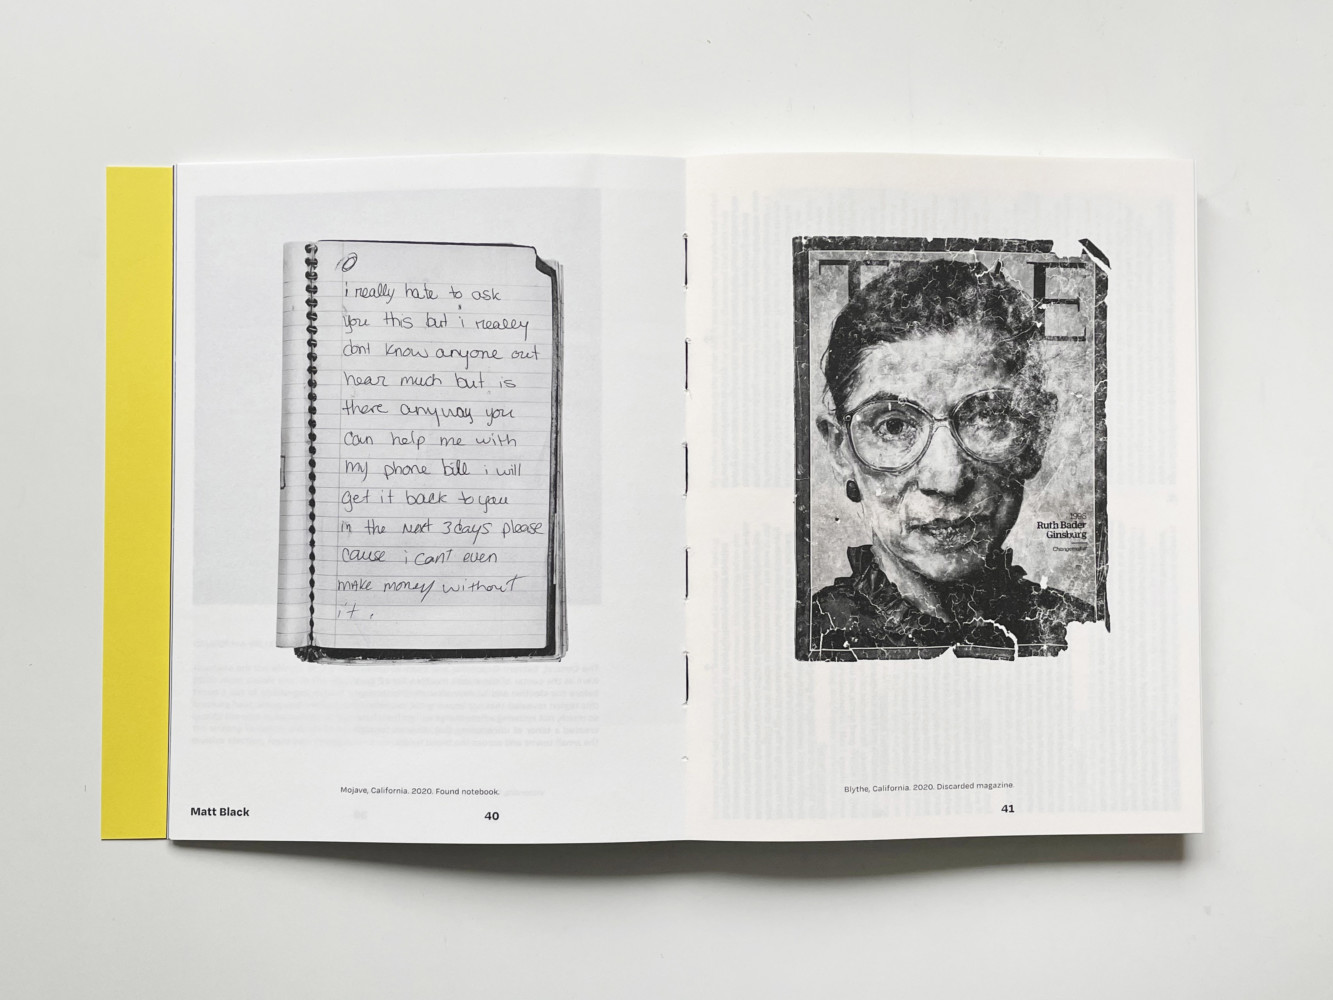 i really hate to ask
you this but i really
dont know anyone out
hear much but is
there anyway you
can help me with
my phone bill i will
get it back to you
in the next 3 days please
cause i can't even
make money without
it.
Mojave, California. 2020. Found notebook.
Matt Black
40
T E
1996
Ruth Bader
Ginsburg
Changemaker
Blythe, California. 2020. Discarded magazine.
41